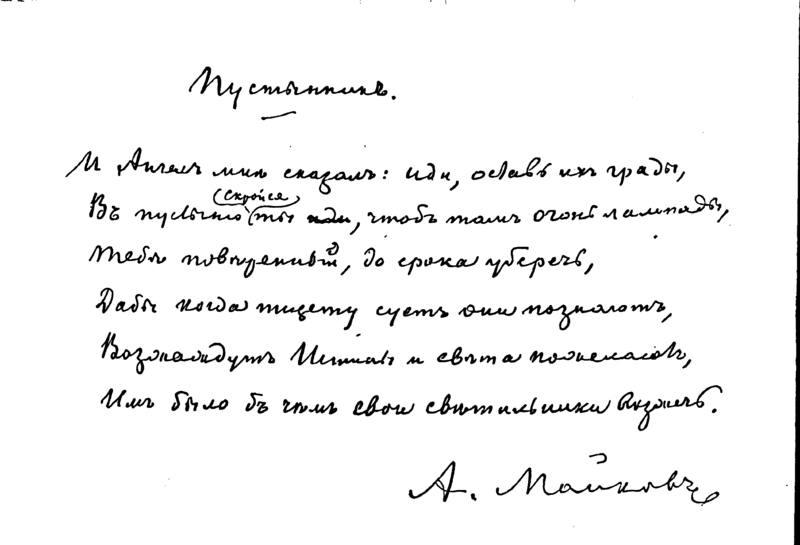 Пустынникъ.
И Ангелъ мнѣ сказалъ: иди, оставь ихъ грады,
Въ пустыню скройся ты иди, чтобъ тамъ огонь лампады,
Тебѣ повѣренный, до срока уберечь,
Дабы когда тщету суетъ они познаютъ,
Возжаждутъ Истины и свѣта пожелаютъ,
Имъ было бъ чѣмъ свои свѣтильники возжечь.
А. Майковъ